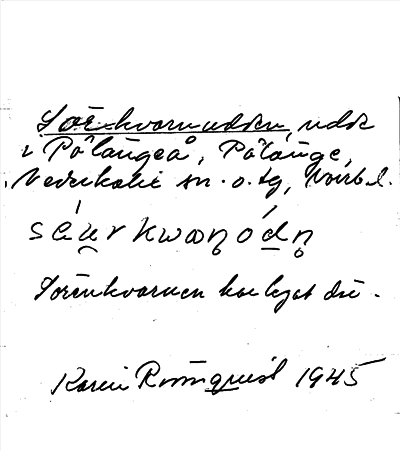 Sörenkvarnudden, udde
i Pålängeå, Pålänge,
Nederkalix sn. o. tg, Norrb. l.
séu̯rkwaṇódṇ
Sörenkvarnen har legat där.
Karin Rönnquist 1945